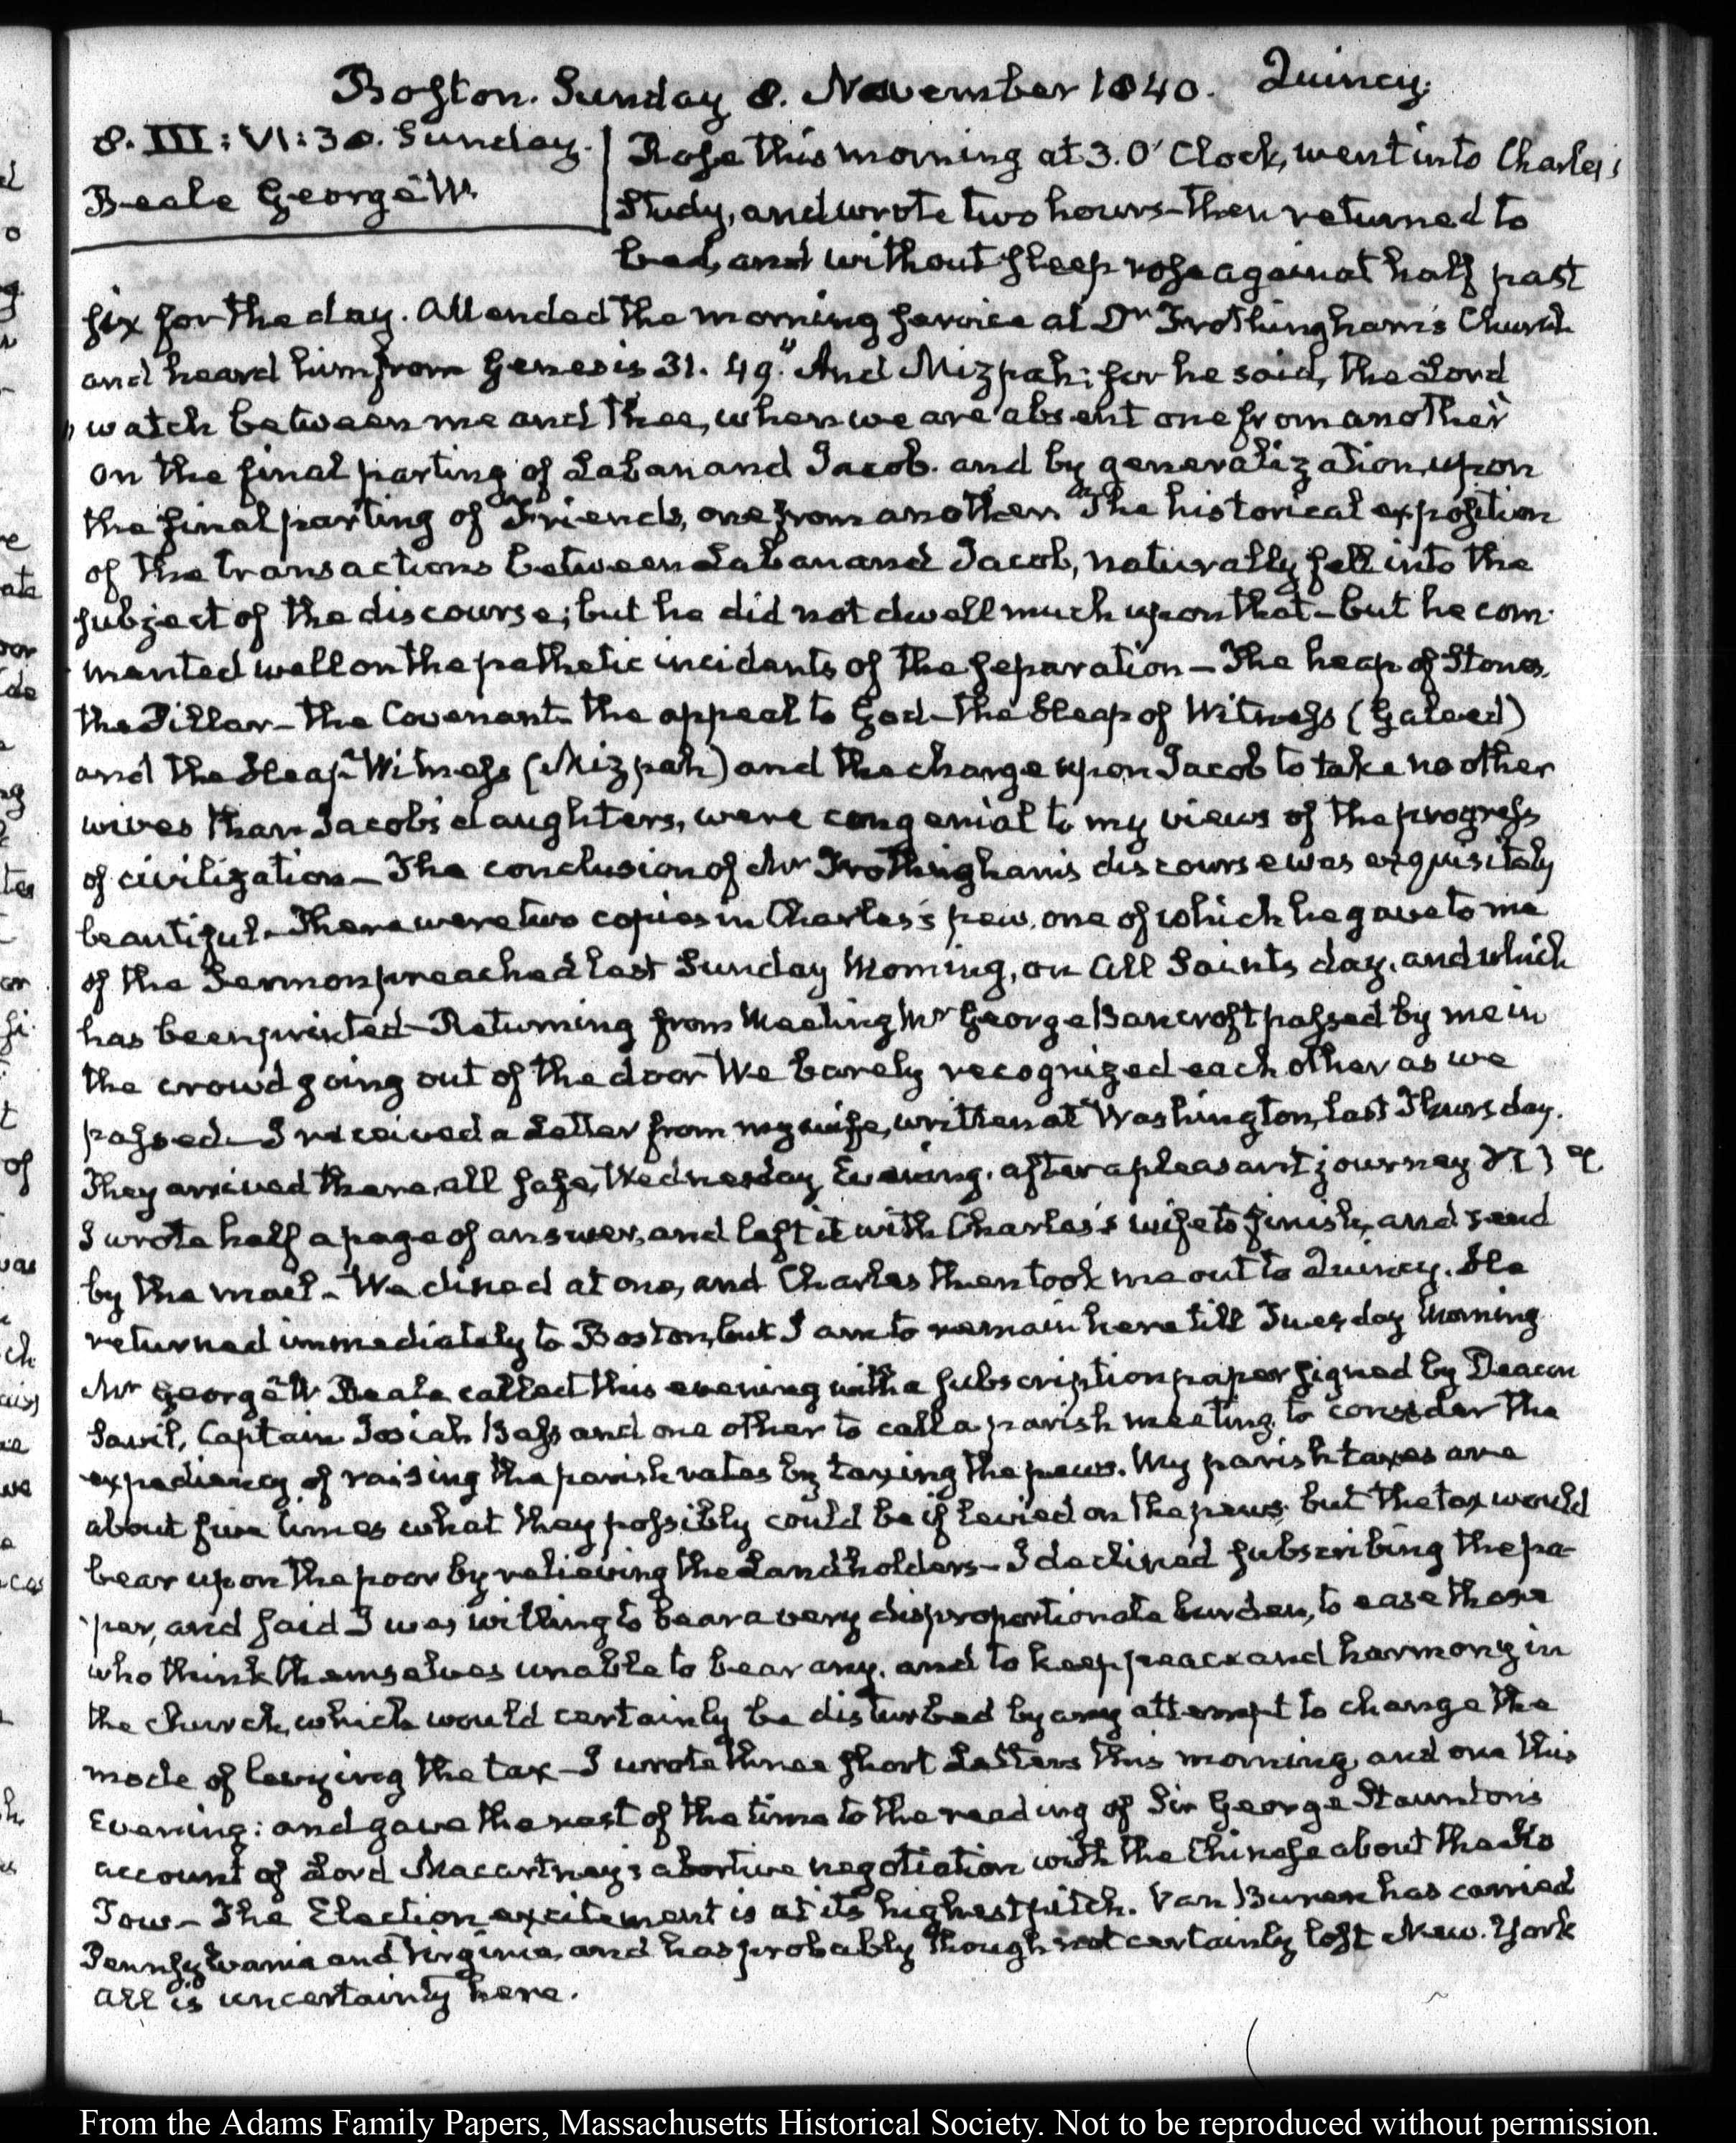 Boston. Sunday 8. November 1840. Quincy.
8. III: VI: 30. Sunday.
Beale George W.
Rose this morning at 3. O'Clock, went into Charles's
Study, and wrote two hours – then returned to
bed, and without sleep rose again at half past
six for the day. Attended the morning service at Dr Frothingham's Church
and heard him from Genesis 31. 49. "And Mizpah; for he said, the Lord
"watch between me and thee, when we are absent one from another"
on the final parting of Laban and Jacob. and by generalization, upon
the final parting of Friends, one from another. The historical exposition
of the transactions between Laban and Jacob, naturally fell into the
subject of the discourse; but he did not dwell much upon that – but he com-
mented well on the pathetic incidents of the separation – The heap of Stones,
the Pillar – the Covenant – the appeal to God – the Heap of Witness (Galeed)
and the Heap-Witness (Mizpah) and the charge upon Jacob to take no other
wives than Jacob's daughters, were congenial to my views of the progress
of civilization – The conclusion of Mr Frothingham's discourse was exquisitely
beautiful – There were two copies in Charles's pew, one of which he gave to me
of the Sermon preached last Sunday Morning, on All Saints day, and which
has been printed – Returning from Meeting Mr George Bancroft passed by me in
the crowd going out of the door We barely recognized each other as we
passed – I received a Letter from my wife, written at Washington, last Thursday.
They arrived there, all safe, Wednesday Evening, after a pleasant journey
I wrote half a page of answer, and left it with Charles's wife to finish, and send
by the mail – We dined at one, and Charles then took me out to Quincy. He
returned immediately to Boston, but I am to remain here till Tuesday Morning
Mr George W. Beale called this evening with a subscription paper signed by Deacon
Savil, Captain Josiah Bass and one other to call a parish meeting, to consider the
expediency of raising the parish rates by taxing the pews. My parish taxes are
about five times what they possibly could be if levied on the pews, but the tax would
bear upon the poor by relieving the Landholders – I declined subscribing the pa-
per, and said I was willing to bear a very disproportionate burden, to ease those
who think themselves unable to bear any, and to keep peace and harmony in
the Church, which would certainly be disturbed by any attempt to change the
mode of levying the tax – I wrote three short Letters this morning, and one this
Evening: and gave the rest of the time to the reading of Sir George Staunton's
account of Lord Macartney's abortive negotiation with the Chinese about the Ko
Tow – The Election excitement is at its highest pitch. Van Buren has carried
Pennsylvania and Virginia, and has probably though not certainly lost New-York
all is uncertainty here.
From the Adams Family Papers, Massachusetts Historical Society. Not to be reproduced without permission.